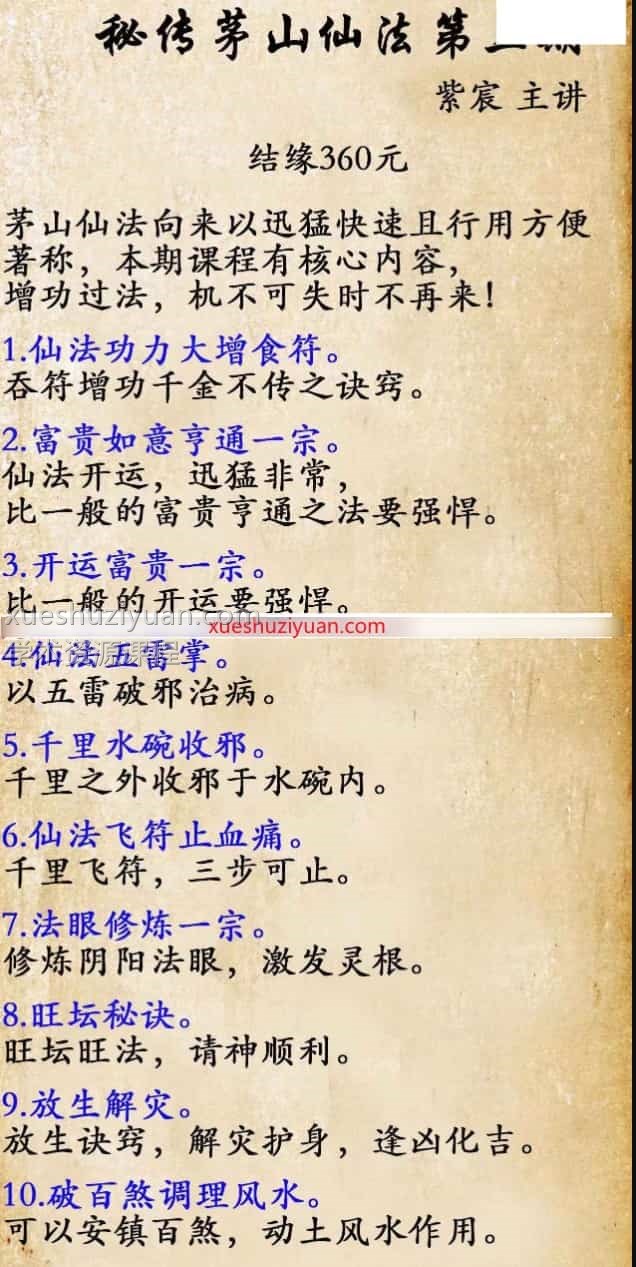 秘传茅山仙法第
紫宸 主讲
结缘360元
茅山仙法向来以迅猛快速且行用方便
著称，本期课程有核心内容，
增功过法，机不可失时不再来！
1.仙法功力大增食符。
吞符增功千金不传之诀窍。
2.富贵如意亨通一宗。
仙法开运，迅猛非常，
比一般的富贵亨通之法要强悍。
3.开运富贵一宗。
比一般的开运要强悍。
xueshuziyuan.com
xueshuziyuan.com
4.仙法五雷掌。
以五雷破邪治病。
5.千里水碗收邪。
千里之外收邪于水碗内。
6.仙法飞符止血痛。
千里飞符，三步可止。
7.法眼修炼一宗。
修炼阴阳法眼，激发灵根。
8.旺坛秘诀。
旺坛旺法，请神顺利。
9.放生解灾。
放生诀窍，解灾护身，逢凶化吉。
10.破百煞调理风水。
可以安镇百煞，动土风水作用。